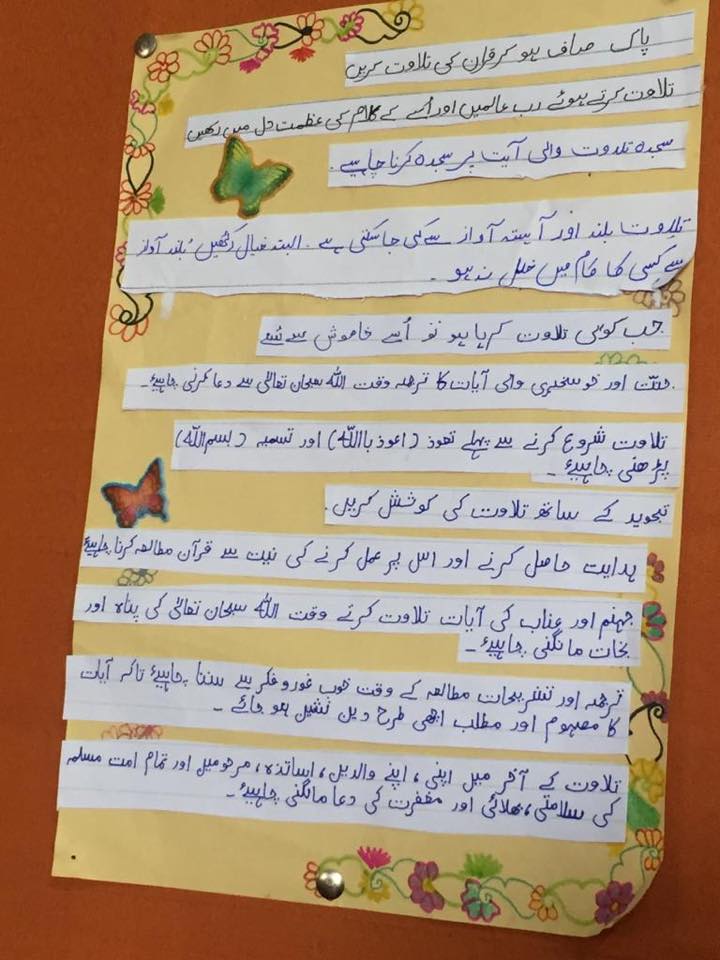 پاک صاف ہو کر قرآن کی تلاوت کریں
تلاوت کرتے ہوئے رب عالمین اور اُسے کے کلام کی عظمت دل میں رکھیں
سجدہ تلاوت والی آیت پر سجدہ کرنا چاہیے ۔
تلاوت بلند اور آہستہ آواز سے کی جا سکتی ہے ۔ البتہ خیال رکھیں بلند آواز
سے کسی کا کام میں خلل نہ ہو ۔
جب کوئی تلاوت کر رہا ہو تو اُسے خاموش سے سنے
جنّت اور خوشخبری والی آیات کا ترجمہ وقت اللہ سبحان تعالٰی سے دعا کرنی چاہیئے ۔
تلاوت شروع کرنے سے پہلے تعوذ (اعوذ باللّٰہ) اور تسمیہ (بسم اللّٰہ)
پڑھنی چاہیئے ۔
تجوید کے ساتھ تلاوت کی کوشش کریں ۔
ہدایت حاصل کرنے اور اس پر عمل کرنے کی نیت سے قرآن مطالعہ کرنا چاہیئے
جہنم اور عذاب کی آیات تلاوت کرتے وقت اللّٰہ سبحان تعالٰی کی پناہ اور
نجات مانگنی چاہیئے ۔
ترجمہ اور تشریحات مطالعہ کے وقت خوب غور و فکر سے سننا چاہیئے تاکہ آیات
کا مفہوم اور مطلب اچھی طرح ذہن نشین ہو جائے ۔
تلاوت کے آخر میں اپنی، اپنے والدین، اساتذہ، مرحومین اور تمام امت مسلمہ
کی سلامتی، بھلائی اور مغفرت کی دعا مانگنی چاہیئے ۔